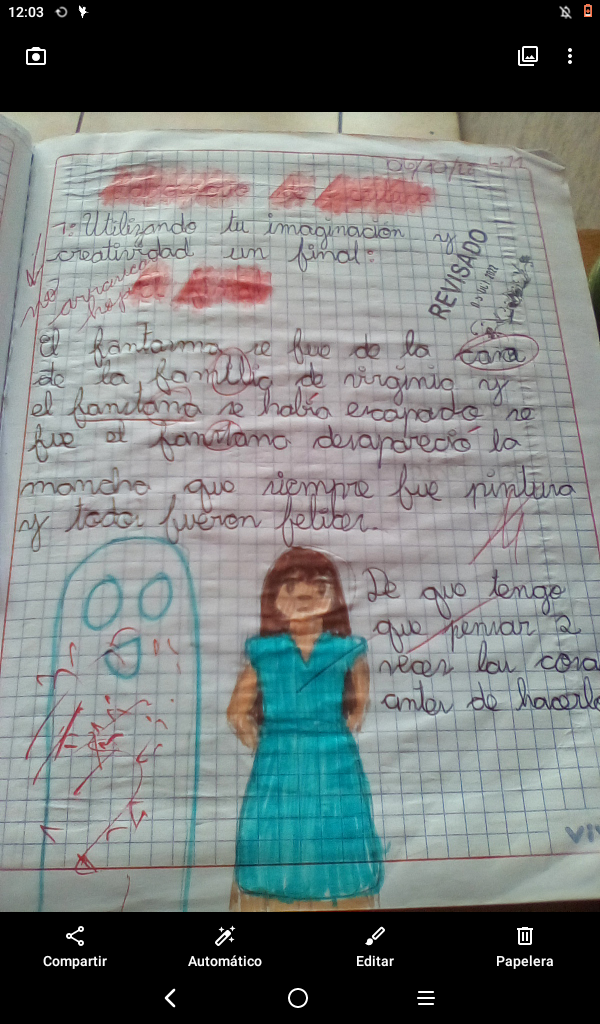 12:03
06/10/20
1: Utilizando tu imaginación y
creatividad un final:
REVISADO
no arranca
hoja
El fantasma se fue de la casa
de la familia de virginia y
el fanstama se había escapado se
fue el fanstama desapareció la
mancha que siempre fue pintura
y todos fueron felices.
De que tengo
que pensar 2
veces las cosa
antes de hacerlo
Compartir
Automático
Editar
Papelera